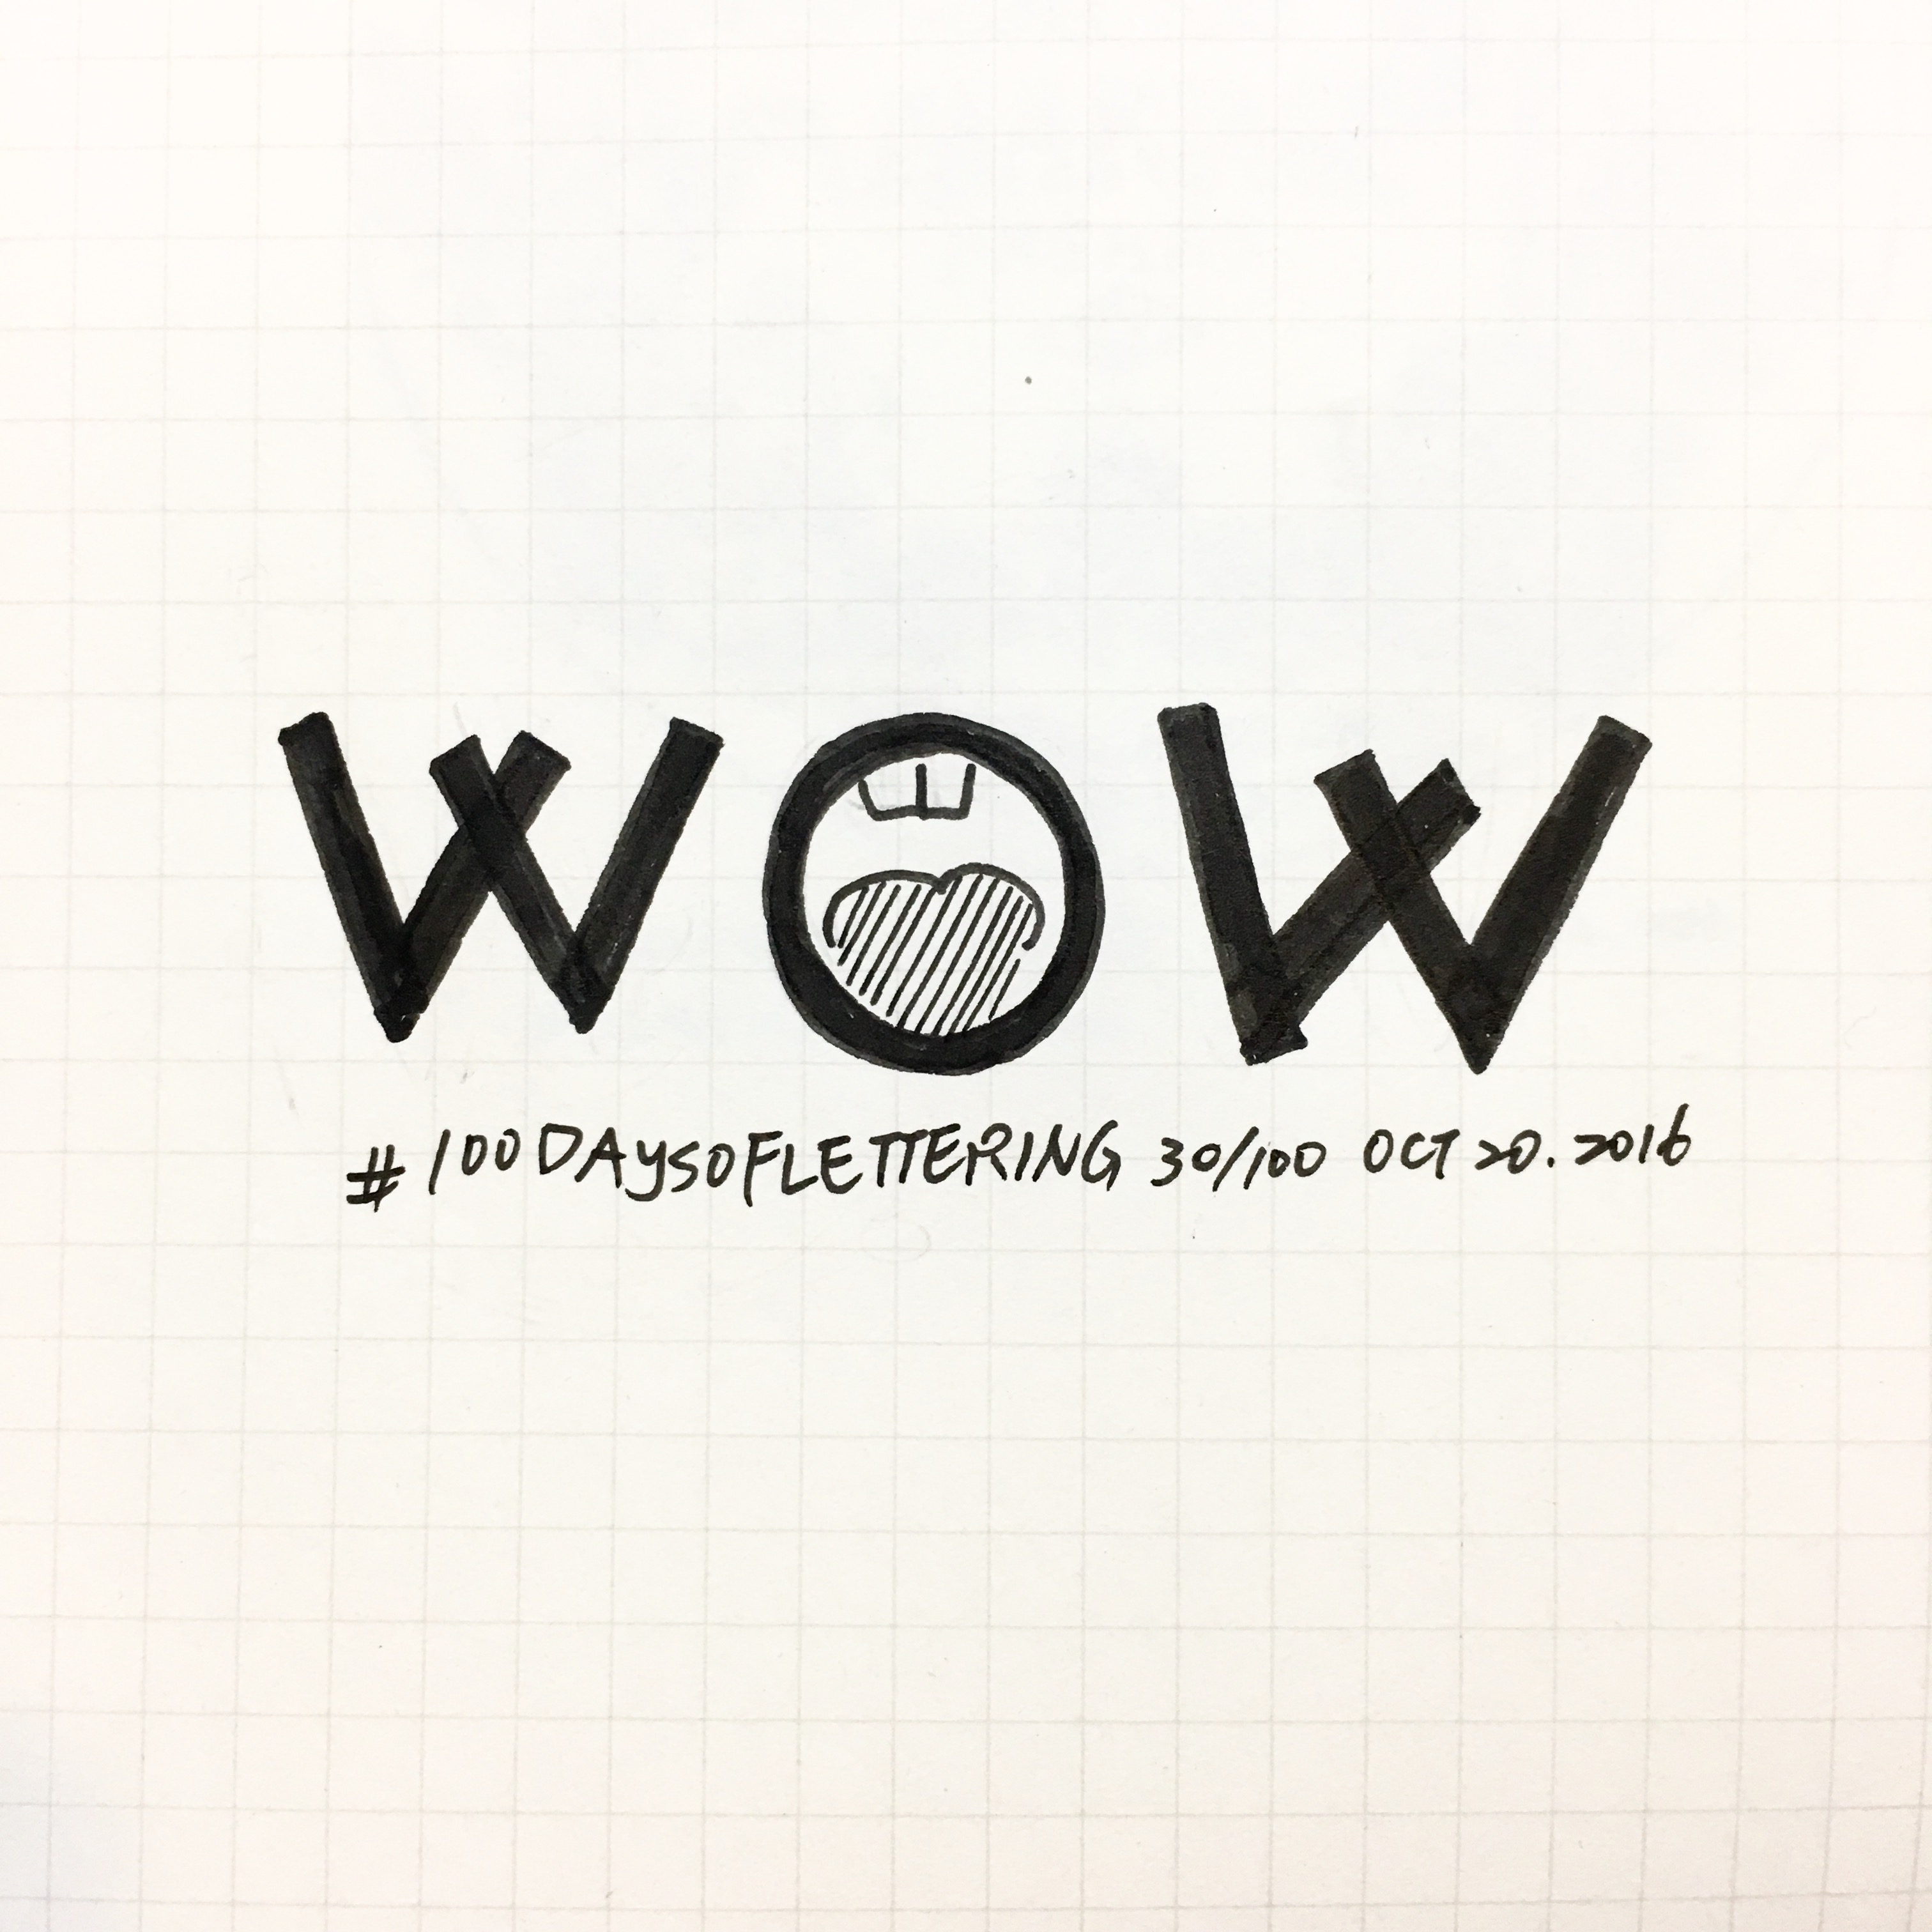 WOW
#100DAYSOFLETTERING 30/100 OCT 20. 2016